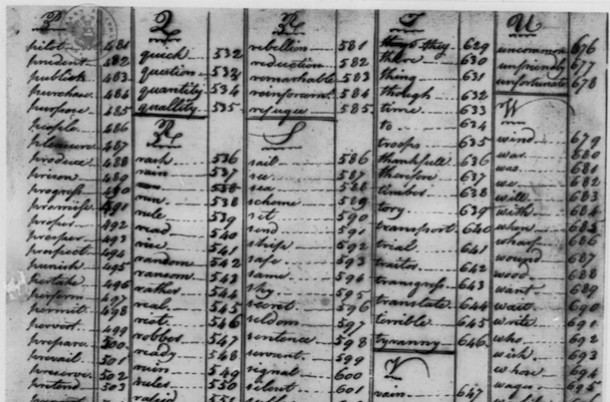 P
pilot 481
prudent 482
publish 483
purchase 484
purpose 485
people 486
pleasure 487
produce 488
prison 489
progress 490
promise 491
proper 492
prosper 493
prospect 494
punish 495
partake 496
perform 497
permit 498
pervert 499
prepare 500
prevail 501
preserve 502
pretend 503
Q
quick 532
question 533
quantity 534
quallity 535
R
rash 536
rain 537
run 538
rule 539
read 540
rise 541
random 542
ransom 543
rather 544
real 545
riot 546
robber 547
ready 548
ruin 549
rules 550
551
R
rebellion 581
reduction 582
remarkable 583
reinforcmt 584
refugee 585
S
sail 586
see 587
sea 588
scheme 589
set 590
send 591
ship 592
safe 593
same 594
sky 595
secret 596
seldom 597
sentence 598
servant 599
signal 600
silent 601
T
they 629
there 630
thing 631
though 632
time 633
to 634
troops 635
thankfull 636
therefore 637
timber 638
tory 639
transport 640
trial 641
traitor 642
transgress 643
translate 644
terrible 645
tyranny 646
V
vain 647
U
uncommon 676
unfriendly 677
unfortunate 678
W
wind 679
war 680
was 681
we 682
will 683
with 684
when 685
wharf 686
wound 687
wood 688
want 689
wait 690
write 691
who 692
wish 693
whose 694
wages 695